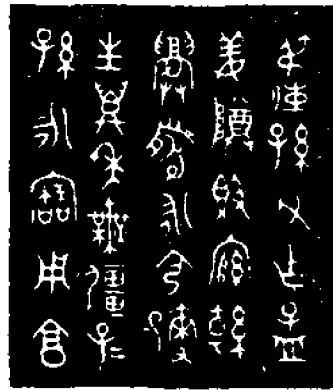 叔㚤孫父乍孟
姜尊簋綰綽
眉壽永令彌
生萬年無疆子=
孫=永寶用享